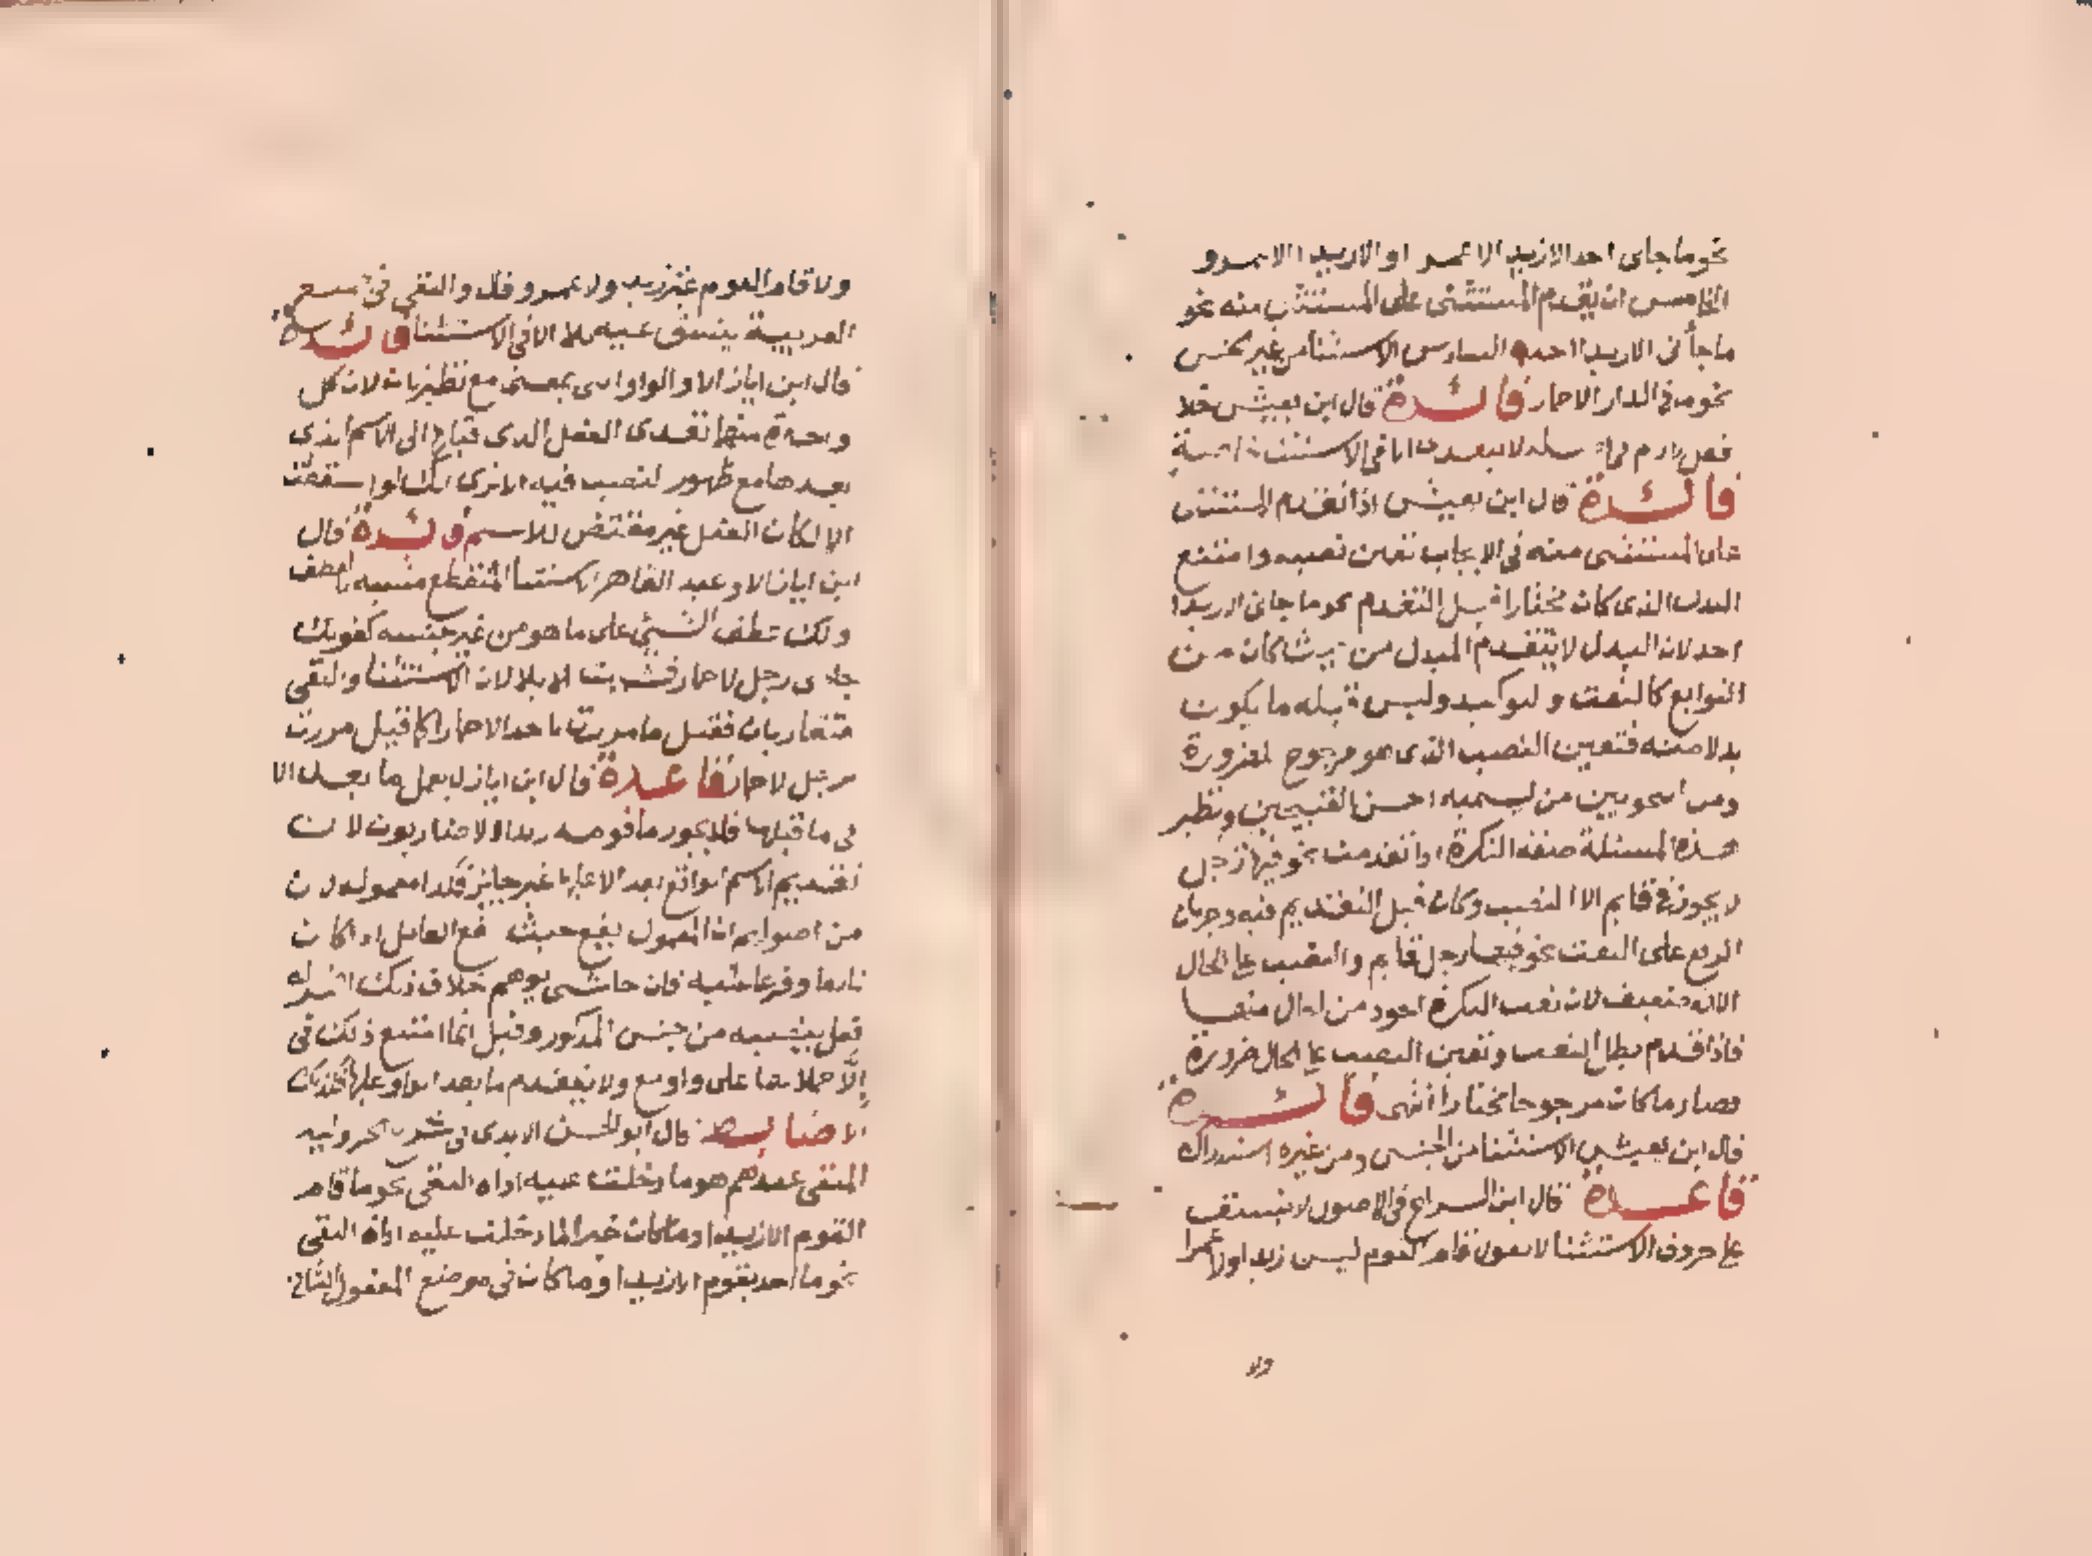 نحو ما جاى احد الازيد الا عمر او الا زيدا الا عمرو
الخامس ان يقدم المستثنى على المستثنى منه نحو
ما جأنى الا زيدا احد السادس الاستثنا من غير الجنس
نحو ما فى الدار الا حمار فائدة قال ابن يعيش خلا
فعل لازم فى الا فى الاستثنا
فائدة قال ابن يعيش اذا تقدم المستثنى
على المستثنى منه فى الايجاب تعين نصبه وامتنع
البدل الذى كان مختارا قبل التقدم نحو ما جانى الا زيدا
احد لان البدل لا يتقدم المبدل من حيث كان من
التوابع كالنعت والتوكيد وليس قبله ما يكون
بدلا منه فتعين النصب الذى هو مرجوح لضرورة
ومن النحويين من يسميه احسن القبيحين ونظير
هذه المسئلة صفة النكرة اذا تقدمت نحو فيها رجل
لا يجوز فى قايم الا النصب وكان قبل التقديم فيه وجهان
الرفع على النعت نحو فيها رجل قايم والنصب على الحال
الا انه ضعيف لان نعت النكرة اجود من الحال منها
فاذا قدم بطل النعت وتعين النصب على الحال ضرورة
فصار ما كان مرجوحا مختارا انتهى فائدة
قال ابن يعيش الاستثنا من الجنس ومن غيره استدراك
قاعدة قال ابن السراج فى الاصول لا ينسق
على حروف الاستثنا لا تقول قام القوم ليس زيدا ولا عمرا
ولا
ولا قام القوم غير زيد ولا عمرو وقال والنفى فى جميع
العربية ينسق عليه بلا الا فى الاستثنا فائدة
قال ابن اياز الا والواو التى بمعنى مع نظيرتان لان كل
واحدة منهما تعدى الفعل الذى قبلها الى الاسم الذى
بعدها مع ظهور النصب فيه الا ترى انك لو اسقطت
الا لكان الفعل غير مقتض للاسم فائدة قال
ابن اياز الا وعبد القاهر الاستثنا المنقطع مشبه بالعطف
ولك عطف الشئ على ما هو من غير جنسه كقولك
جانى رجل لا حمار فشبهت الا بلا لان الاستثنا والنفى
متقاربان فقيل ما مررت باحد الا حمارا كما قيل مررت
برجل لا حمار قاعدة قال ابن اياز لا يعمل ما بعد الا
فى ما قبلها فلا يجوز ما قومه زيدا الا ضاربون لان
تقديم الاسم الواقع بعد الا عليها غير جايز فكذا معموله لان
من اصولهم ان المعمول يقع حيث يقع العامل اذ كان
تابعا وفرعا عليه فان جا شى يوهم خلاف ذلك اضمر له
فعل ينصبه من جنس المذكور وقيل انما امتنع ذلك فى
إلّا حملا لها على واو مع ولا يتقدم ما بعد الواو عليها فكذلك
الا ضابط قال ابو الحسن الابدى فى شرح الجزولية
المنفى عندهم هو ما دخلت عليه اداة النفى نحو ما قام
القوم الا زيدا وما كان خبرا لما دخلت عليه اداة النفى
نحو ما احد يقوم الا زيدا وما كان فى موضع المفعول الثانى